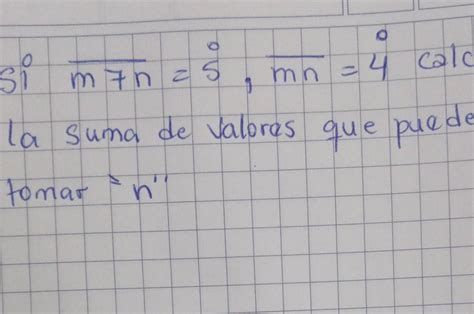 Si m7n = 5, mn = 4 calc
la suma de valores que puede
tomar "n"